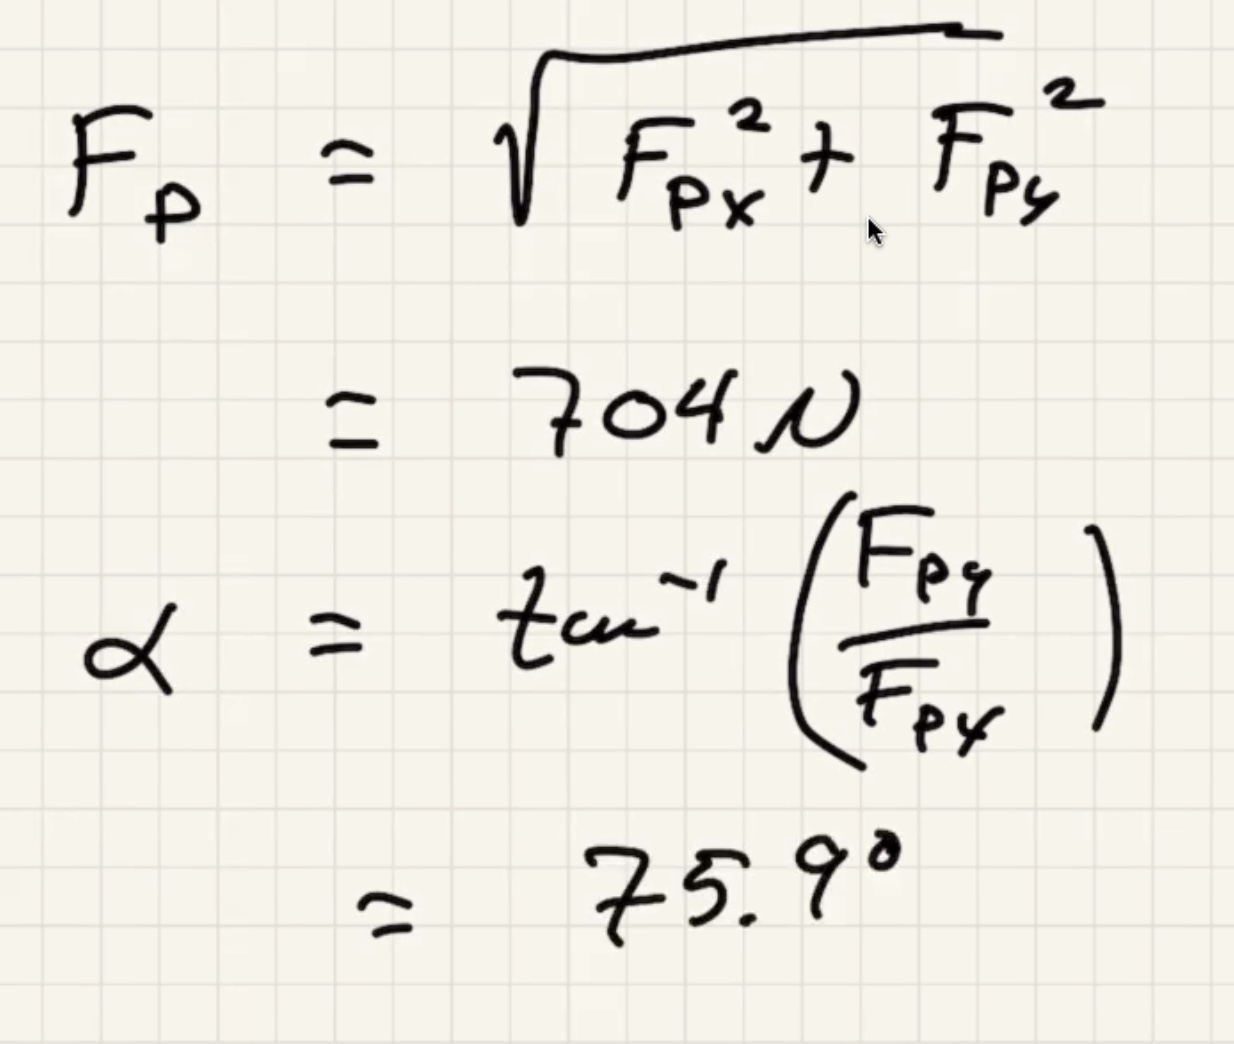 F_p = √(F_px² + F_py²)
= 704 N
α = tan⁻¹ (F_py / F_px)
= 75.9°